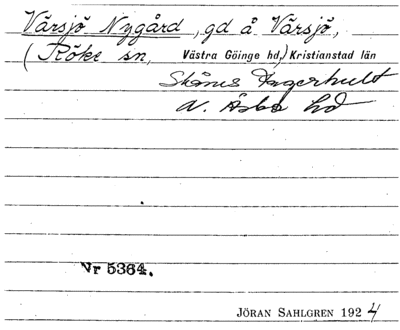 Vårsjö Nygård, gd å Vårsjö,
(Röke sn, Västra Göinge hd,) Kristianstad län
Skånes Fagerhult
N. Åsbo hd
Nr 5364.
JÖRAN SAHLGREN 1924